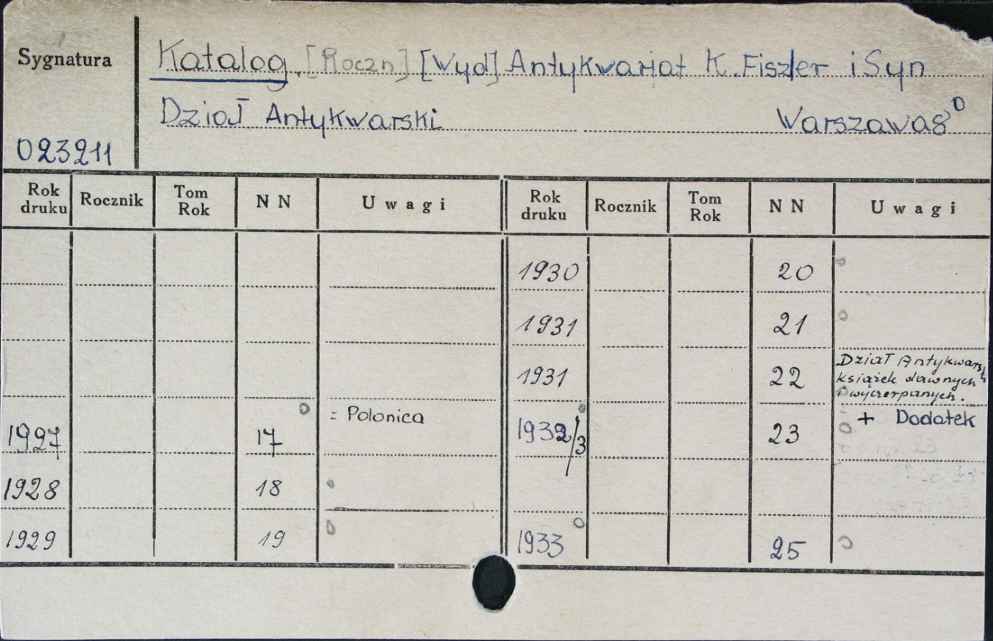 Sygnatura
Katalog. [Roczn] [Wyd] Antykwariat K. Fiszler i Syn
Dział Antykwarski Warszawa 8°
023211
Rok druku Rocznik Tom Rok NN Uwagi Rok druku Rocznik Tom Rok NN Uwagi
1930 20
1931 21
1931 22 Dział Antykwarsk
książek dawnych
i wyczerpanych.
1927 17 = Polonica 1932/3 23 + Dodatek
1928 18
1929 19 1933 25